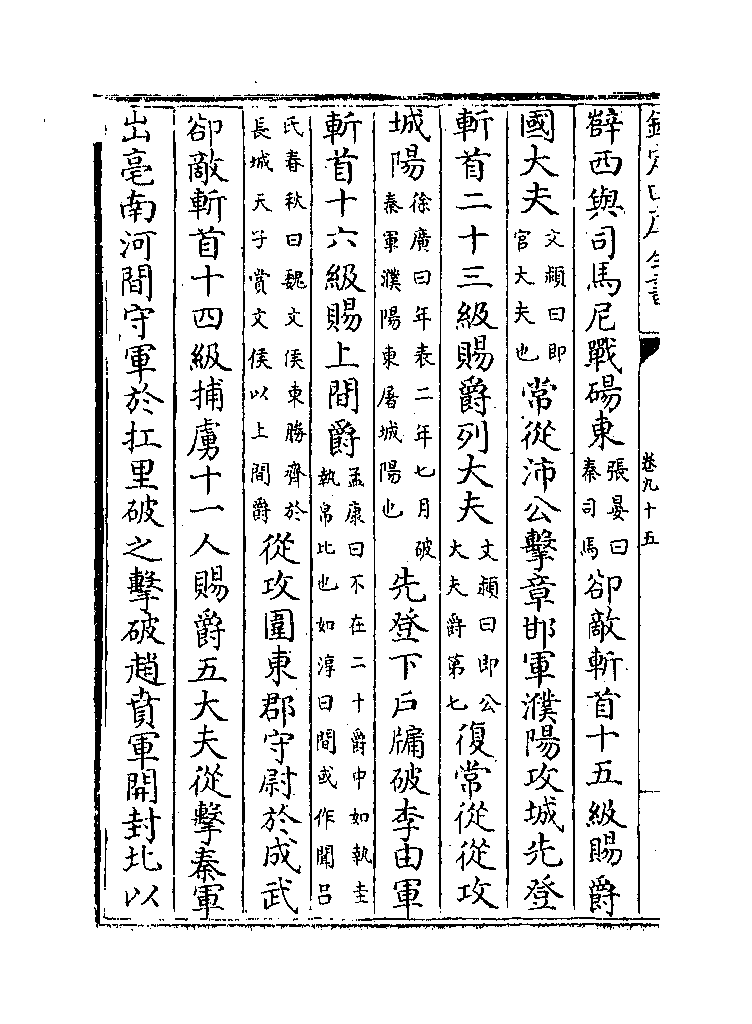 欽定四庫全書
卷九十五
薛西與司馬尼戰碭東張晏曰秦司馬卻敵斬首十五級賜爵
國大夫文穎曰即官大夫也常從沛公擊章邯軍濮陽攻城先登
斬首二十三級賜爵列大夫文穎曰即公大夫爵第七復常從從攻
城陽徐廣曰年表二年七月破秦軍濮陽東屠城陽也先登下戶牖破李由軍
斬首十六級賜上間爵孟康曰不在二十爵中如執圭執帛比也如淳曰間或作聞呂
氏春秋曰魏文侯東勝齊於長城天子賞文侯以上間爵從攻圍東郡守尉於成武
卻敵斬首十四級捕虜十一人賜爵五大夫從擊秦軍
出亳南河間守軍於扛里破之擊破趙賁軍開封北以